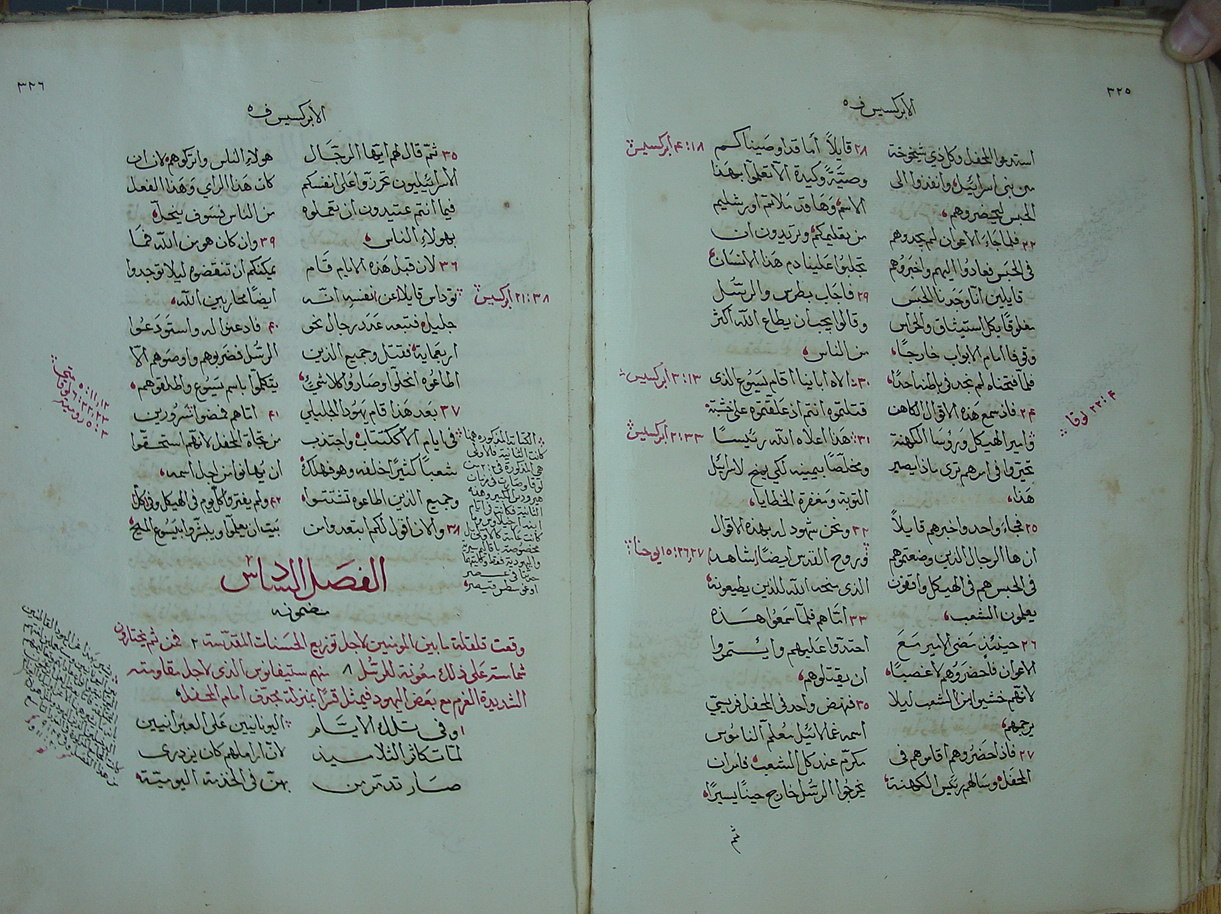 ٣٢٥
الابركسيس ف ٥
استدعوا المحفل وكل ذي شيخوخة
من بني اسرائيل وانفذوا الى
الحبس ليحضروهم
٢٢ فلما جاء الاعوان لم يجدوهم
في الحبس فعادوا اليهم واخبروهم
قايلين انا وجدنا الحبس
مغلوقا بكل استيثاق والحراس
وقوفا امام الابواب خارجا
فلما فتحناه لم نجد في باطنه احدا
٢٤ فاذ سمع هذه الاقوال الكاهن
وامير الهيكل وروسا الكهنة
تحيروا في امرهم ترى ماذا يصير
هذا
٢٥ فجاء واحد واخبرهم قايلا
ان ها الرجال الذين وضعتموهم
في الحبس هم في الهيكل واقفون
يعلمون الشعب
٢٦ حينئذ مضى الامير مع
الاعوان فاحضروهم لا غصبا
لانهم خشيوا من الشعب ليلا
يرجمهم
٢٧ فاذ احضروهم اقاموهم في
المحفل وسالهم ريس الكهنة
٢٨ قايلا اما قد اوصيناكم
وصية وكيدة الا تعلموا بهذا
الاسم وها قد ملاتم اورشليم
من تعليمكم وتريدون ان
تجلبوا علينا دم هذا الانسان
٢٩ فاجاب بطرس والرسل
وقالوا يجب ان يطاع الله اكثر
من الناس
٣٠ الاه اباينا اقام يسوع الذي
قتلتموه انتم اذ علقتموه على خشبة
٣١ هذا اعلاه الله رئيسا
ومخلصا بيمينه لكي يمنح لاسرائيل
التوبة ومغفرة الخطايا
٣٢ ونحن شهود له بهذه الاقوال
وبروح القدس ايضا شاهد
الذي منحه الله للذين يطيعونه
٣٣ اما هم فلما سمعوا هذه
احتدوا عليهم وايتمروا
ان يقتلوهم
٣٥ فنهض واحد في المحفل فريسي
اسمه غمالائيل معلم الناموس
مكرم عند كل الشعب فامر ان
يخرجوا الرسل خارج حينا يسيرا
ثم
١٨:٤ ابركسيس
١٣:٣ ابركسيس
٣٣:٢ ابركسيس
٢٦,٢٧:١٥ يوحنا
٤:٢٢ لوقا
٣٢٦
الابركسيس ف ٥
٣٥ ثم قال لهم ايها الرجال
الاسرائيليون تحرزوا على انفسكم
فيما انتم عتيدون ان تعملوه
بهولاء الناس
٣٦ لان قبل هذه الايام قام
توداس قايلا عن نفسه انه
جليل فتبعه عدد رجال نحو
اربعماية فقتل وجميع الذين
اطاعوه انحلوا وصاروا كلا شي
٣٧ بعد هذا قام يهود الجليلي
في ايام الاكتتاب واجتذب
شعبا كثيرا خلفه وهو فهلك
وجميع الذين اطاعوه تشتتوا
٣٨ والان اقول لكم ابتعدوا من
هولاء الناس واتركوهم لان ان
كان هذا الراي وهذا الفعل
من الناس فسوف ينحل
٣٩ وان كان هو من الله فما
يمكنكم ان تنقضوه ليلا توجدوا
ايضا محاربين الله
٤٠ فاذعنوا له واستودعوا
الرسل فضروهم واوصوهم الا
يتكلموا باسم يسوع واطلقوهم
٤١ اما هم فمضوا مسرورين
من تجاه المحفل لانهم استحقوا
ان يهانوا من اجل اسمه
٤٢ ولم يفتروا كل يوم في الهيكل وفي كل
بيت ان يعلموا ويبشروا بيسوع المسيح
٣٨:٢١ ابركسيس
١١,١٢:٥ متى
٢٢,٢٣:٦ لوقا
٣:٥ رومية
الفصل السادس
مضمونه
وقعت قلقلة ما بين المومنين لاجل توزيع الحسنات المقدسة ٢ فمن ثم يختارون
شمامسة على ذلك معونة للرسل ٨ منهم ستيفانوس الذي لاجل مقاومته
الشديدة العزم مع بعض اليهود فيمثل قسرا بمنزلة مجدف امام المحفل
١ وفي تلك الايام
لما تكاثر التلاميذ
صار تدمر من
اليونانيين على العبرانيين
لان اراملهم كان يزدرى
بهن في الخدمة اليومية